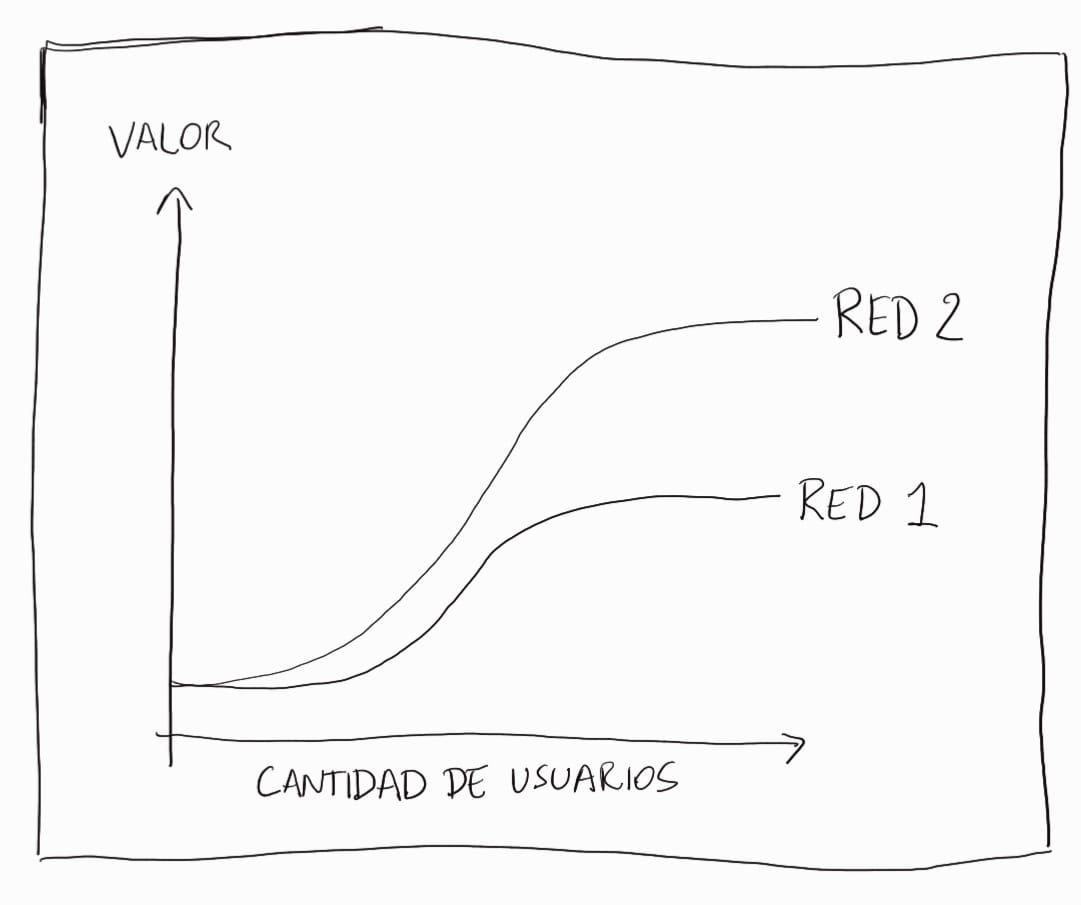 VALOR
RED 2
RED 1
CANTIDAD DE USUARIOS